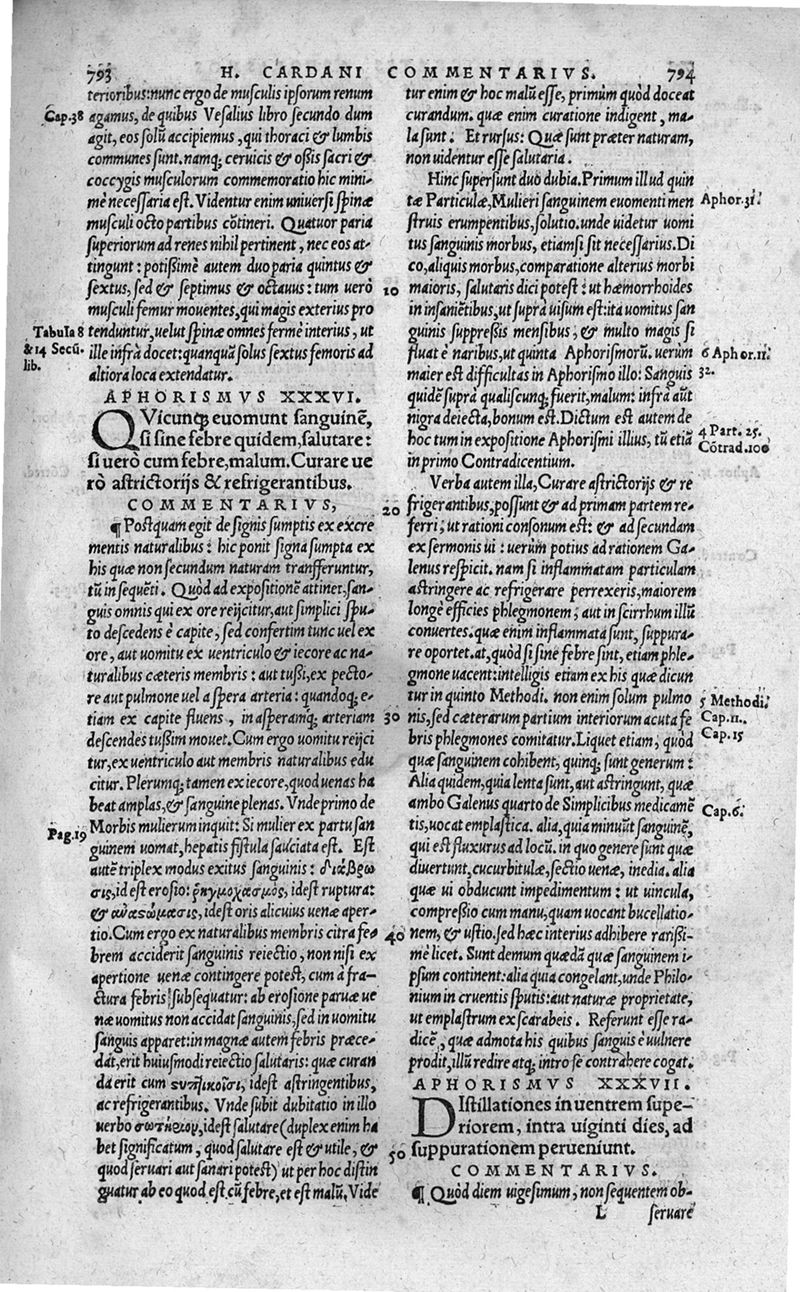 793 H. CARDANI COMMENTARIVS. 794
terioribus: nunc ergo de musculis ipsorum renum
Cap.38 agamus, de quibus Vesalius libro secundo dum
agit, eos solū accipiemus, qui thoraci & lumbis
communes sunt. namq; ceruicis & ossis sacri &
coccygis musculorum commemoratio hic mini-
mè necessaria est. Videntur enim uniuersi spinæ
musculi octo partibus cōtineri. Quatuor paria
superiorum ad renes nihil pertinent, nec eos at-
tingunt: potissimè autem duo paria quintus &
sextus, sed & septimus & octauus: tum uerò
musculi femur mouentes, qui magis exterius pro
Tabula 8 tenduntur, uelut spinæ omnes fermè interius, ut
& 14 Secū. ille infrà docet: quanquā solus sextus femoris ad
lib. altiora loca extendatur.
APHORISMVS XXXVI.
QVicunq; euomunt sanguinē,
si sine febre quidem, salutare:
si uerò cum febre, malum. Curare ue
rò astrictorijs & refrigerantibus.
COMMENTARIVS,
¶ Postquam egit de signis sumptis ex excre
mentis naturalibus: hic ponit signa sumpta ex
his quæ non secundum naturam transferuntur,
tū in sequēti. Quòd ad expositionē attinet, san-
guis omnis qui ex ore reijcitur, aut simplici spu-
to descedens è capite, sed confertim tunc uel ex
ore, aut uomitu ex uentriculo & iecore ac na-
turalibus cæteris membris: aut tussi, ex pecto-
re aut pulmone uel aspera arteria: quandoq; e-
tiam ex capite fluens, in asperamq; arteriam
descendes tussim mouet. Cum ergo uomitu reijci
tur, ex uentriculo aut membris naturalibus edu
citur. Plerumq; tamen ex iecore, quod uenas ha
beat amplas, & sanguine plenas. Vnde primo de
Pag.19 Morbis mulierum inquit: Si mulier ex partu san
guinem uomat, hepatis fistula sauciata est. Est
autē triplex modus exitus sanguinis: διάβρω
σις, id est erosio: ῥηγμοχασμὸς, id est ruptura:
& ἀναστόμωσις, id est oris alicuius uenæ aper-
tio. Cum ergo ex naturalibus membris citra fe-
brem acciderit sanguinis reiectio, non nisi ex
apertione uenæ contingere potest, cum à fra-
ctura febris subsequatur: ab erosione paruæ ue
næ uomitus non accidat sanguinis, sed in uomitu
sanguis apparet: in magnæ autem febris præce-
dat, erit huiusmodi reiectio salutaris: quæ curan
da erit cum idest astringentibus,
ac refrigerantibus. Vnde subit dubitatio in illo
uerbo σωτήριον, idest salutare (duplex enim ha
bet significatum, quod salutare est & utile, &
quod seruari aut sanari potest) ut per hoc distin
guatur ab eo quod est, cū febre, et est malū. Vide
tur enim & hoc malū esse, primùm quòd doceat
curandum. quæ enim curatione indigent, ma-
la sunt. Et rursus: Quæ sunt præter naturam,
non uidentur esse salutaria.
Hinc supersunt duo dubia. Primum illud quin
tæ Particulæ, Mulieri sanguinem euomenti men Aphor.31.
struis erumpentibus, solutio. unde uidetur uomi
tus sanguinis morbus, etiamsi sit necessarius. Di
co, aliquis morbus, comparatione alterius morbi
10 maioris, salutaris dici potest: ut hæmorrhoides
in insaniētibus, ut suprà uisum est: ita uomitus san
guinis suppressis mensibus, & multo magis si
fluat è naribus, ut quinta Aphorismorū. uerùm 6 Aphor.11.
maier est difficultas in Aphorismo illo: Sanguis 32.
quidē suprà qualiscunq; fuerit, malum: infrà aūt
nigra deiecta, bonum est. Dictum est autem de
hoc tum in expositione Aphorismi illius, tū etiā 4 Part. 25.
in primo Contradicentium. Cōtrad.100
Verba autem illa, Curare astrictorijs & re
20 frigerantibus, possunt & ad primam partem re-
ferri, ut rationi consonum est: & ad secundam
ex sermonis ui: uerùm potius ad rationem Ga-
lenus respicit. nam si inflammatam particulam
astringere ac refrigerare perrexeris, maiorem
longè efficies phlegmonem, aut in scirrhum illū
conuertes. quæ enim inflammata sunt, suppura-
re oportet. at, quòd si sine febre sint, etiam phle-
gmone uacent: intelligis etiam ex his quæ dicun
tur in quinto Methodi. non enim solum pulmo 5 Methodi.
30 nis, sed cæterarum partium interiorum acuta fe Cap.11.
bris phlegmones comitatur. Liquet etiam, quòd Cap.15
quæ sanguinem cohibent, quinq; sunt generum:
Alia quidem, quia lenta sunt, aut astringunt, quæ
ambo Galenus quarto de Simplicibus medicamē Cap.6.
tis, uocat emplastica. alia, quia minuūt sanguinē,
qui est fluxurus ad locū. in quo genere sunt quæ
diuertunt, cucurbitulæ, sectio uenæ, inedia. alia
quæ ui obducunt impedimentum: ut uincula,
compressio cum manu, quam uocant bucellatio-
40 nem, & ustio. sed hæc interius adhibere rarissi-
mè licet. Sunt demum quædā quæ sanguinem i-
psum continent: alia quia congelant, unde Philo-
nium in cruentis sputis: aut naturæ proprietate,
ut emplastrum ex scarabeis. Referunt esse ra-
dicē, quæ admota his quibus sanguis è uulnere
prodit, illū redire atq; intro se contrahere cogat.
APHORISMVS XXXVII.
DIstillationes in uentrem supe-
riorem, intra uiginti dies, ad
50 suppurationem perueniunt.
COMMENTARIVS.
¶ Quòd diem uigesimum, non sequentem ob-
L seruare